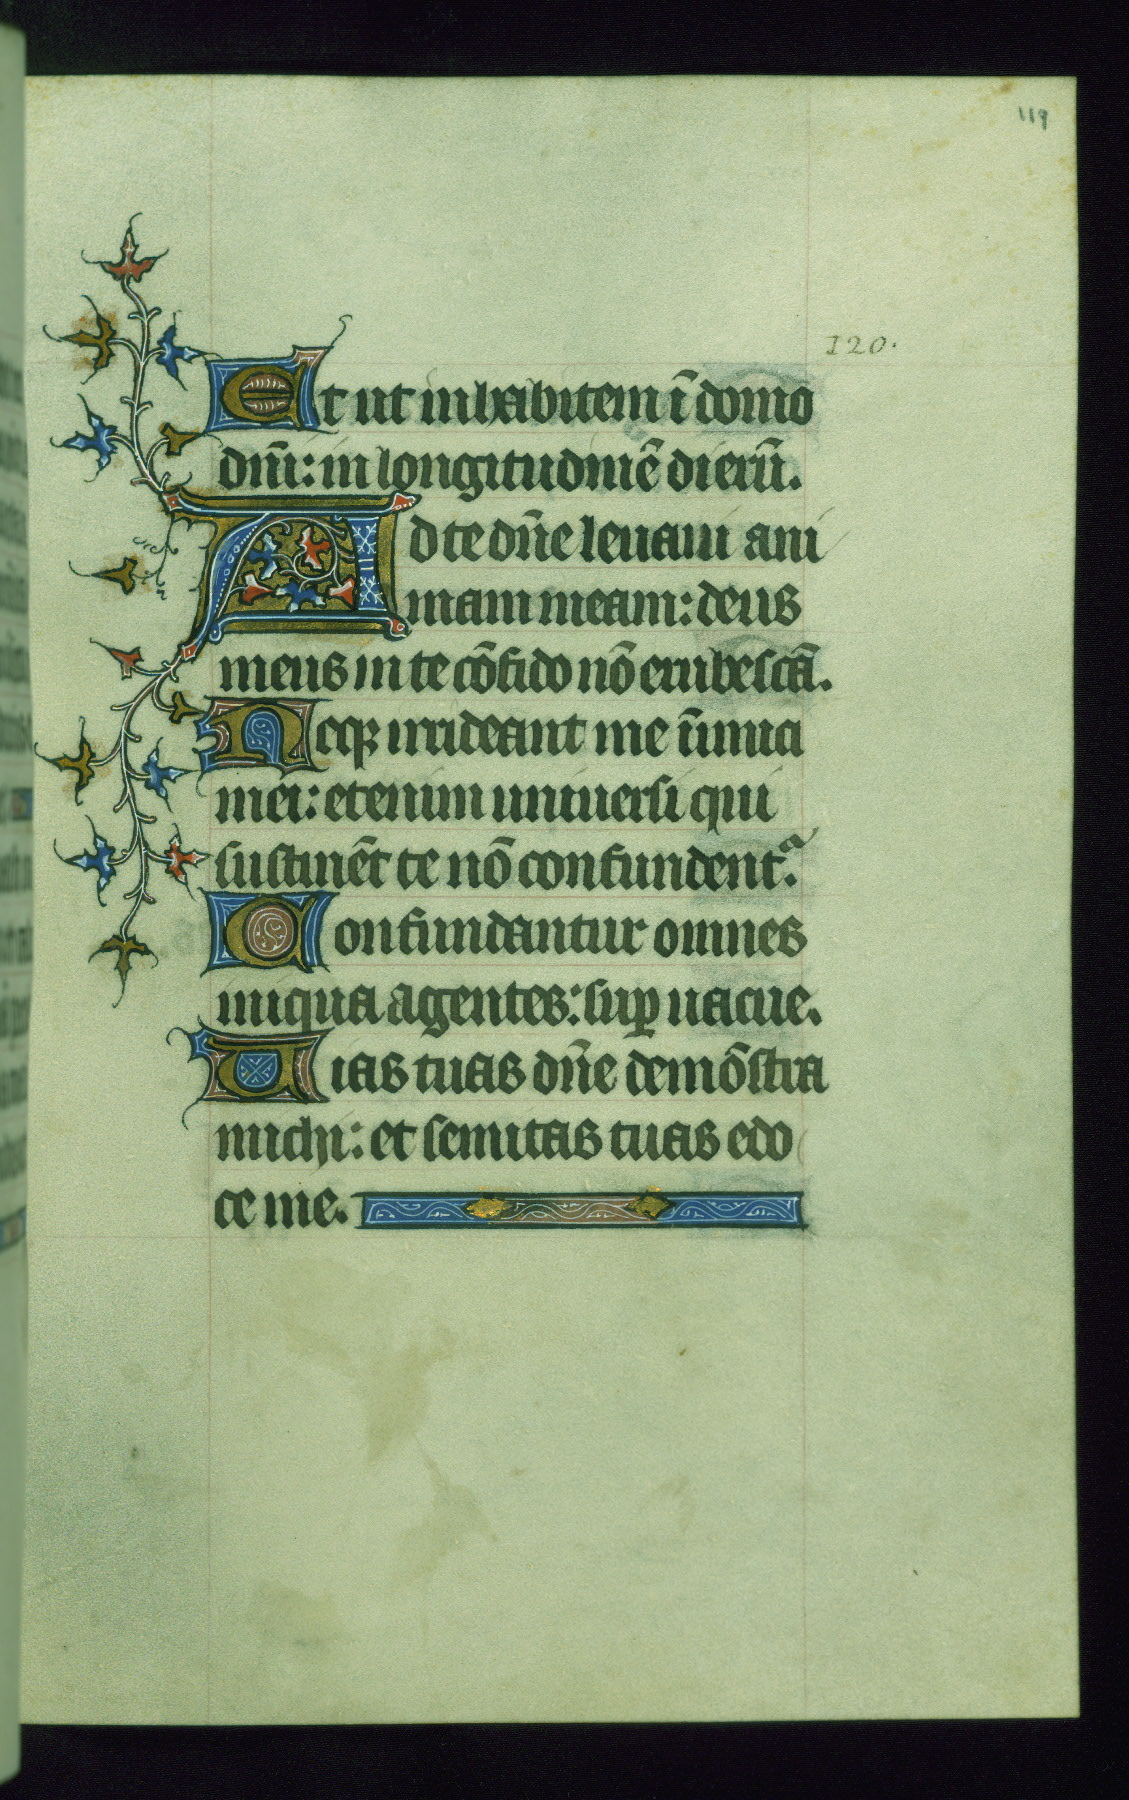 119
120.
Et ut inhabitem ī domo
dn̄i: in longitudinē dierū.
Ad te dn̄e leuaui ani
mam meam: deus
meus in te cōfido nō erubescā.
Neqꝫ irrideant me īimici
mei: etenim uniuersi qui
sustinēt te nō confundentᵃ.
Confundantur omnes
iniqua agentes: suꝑ uacue.
Uias tuas dn̄e demōstra
michi: et semitas tuas edo
ce me.